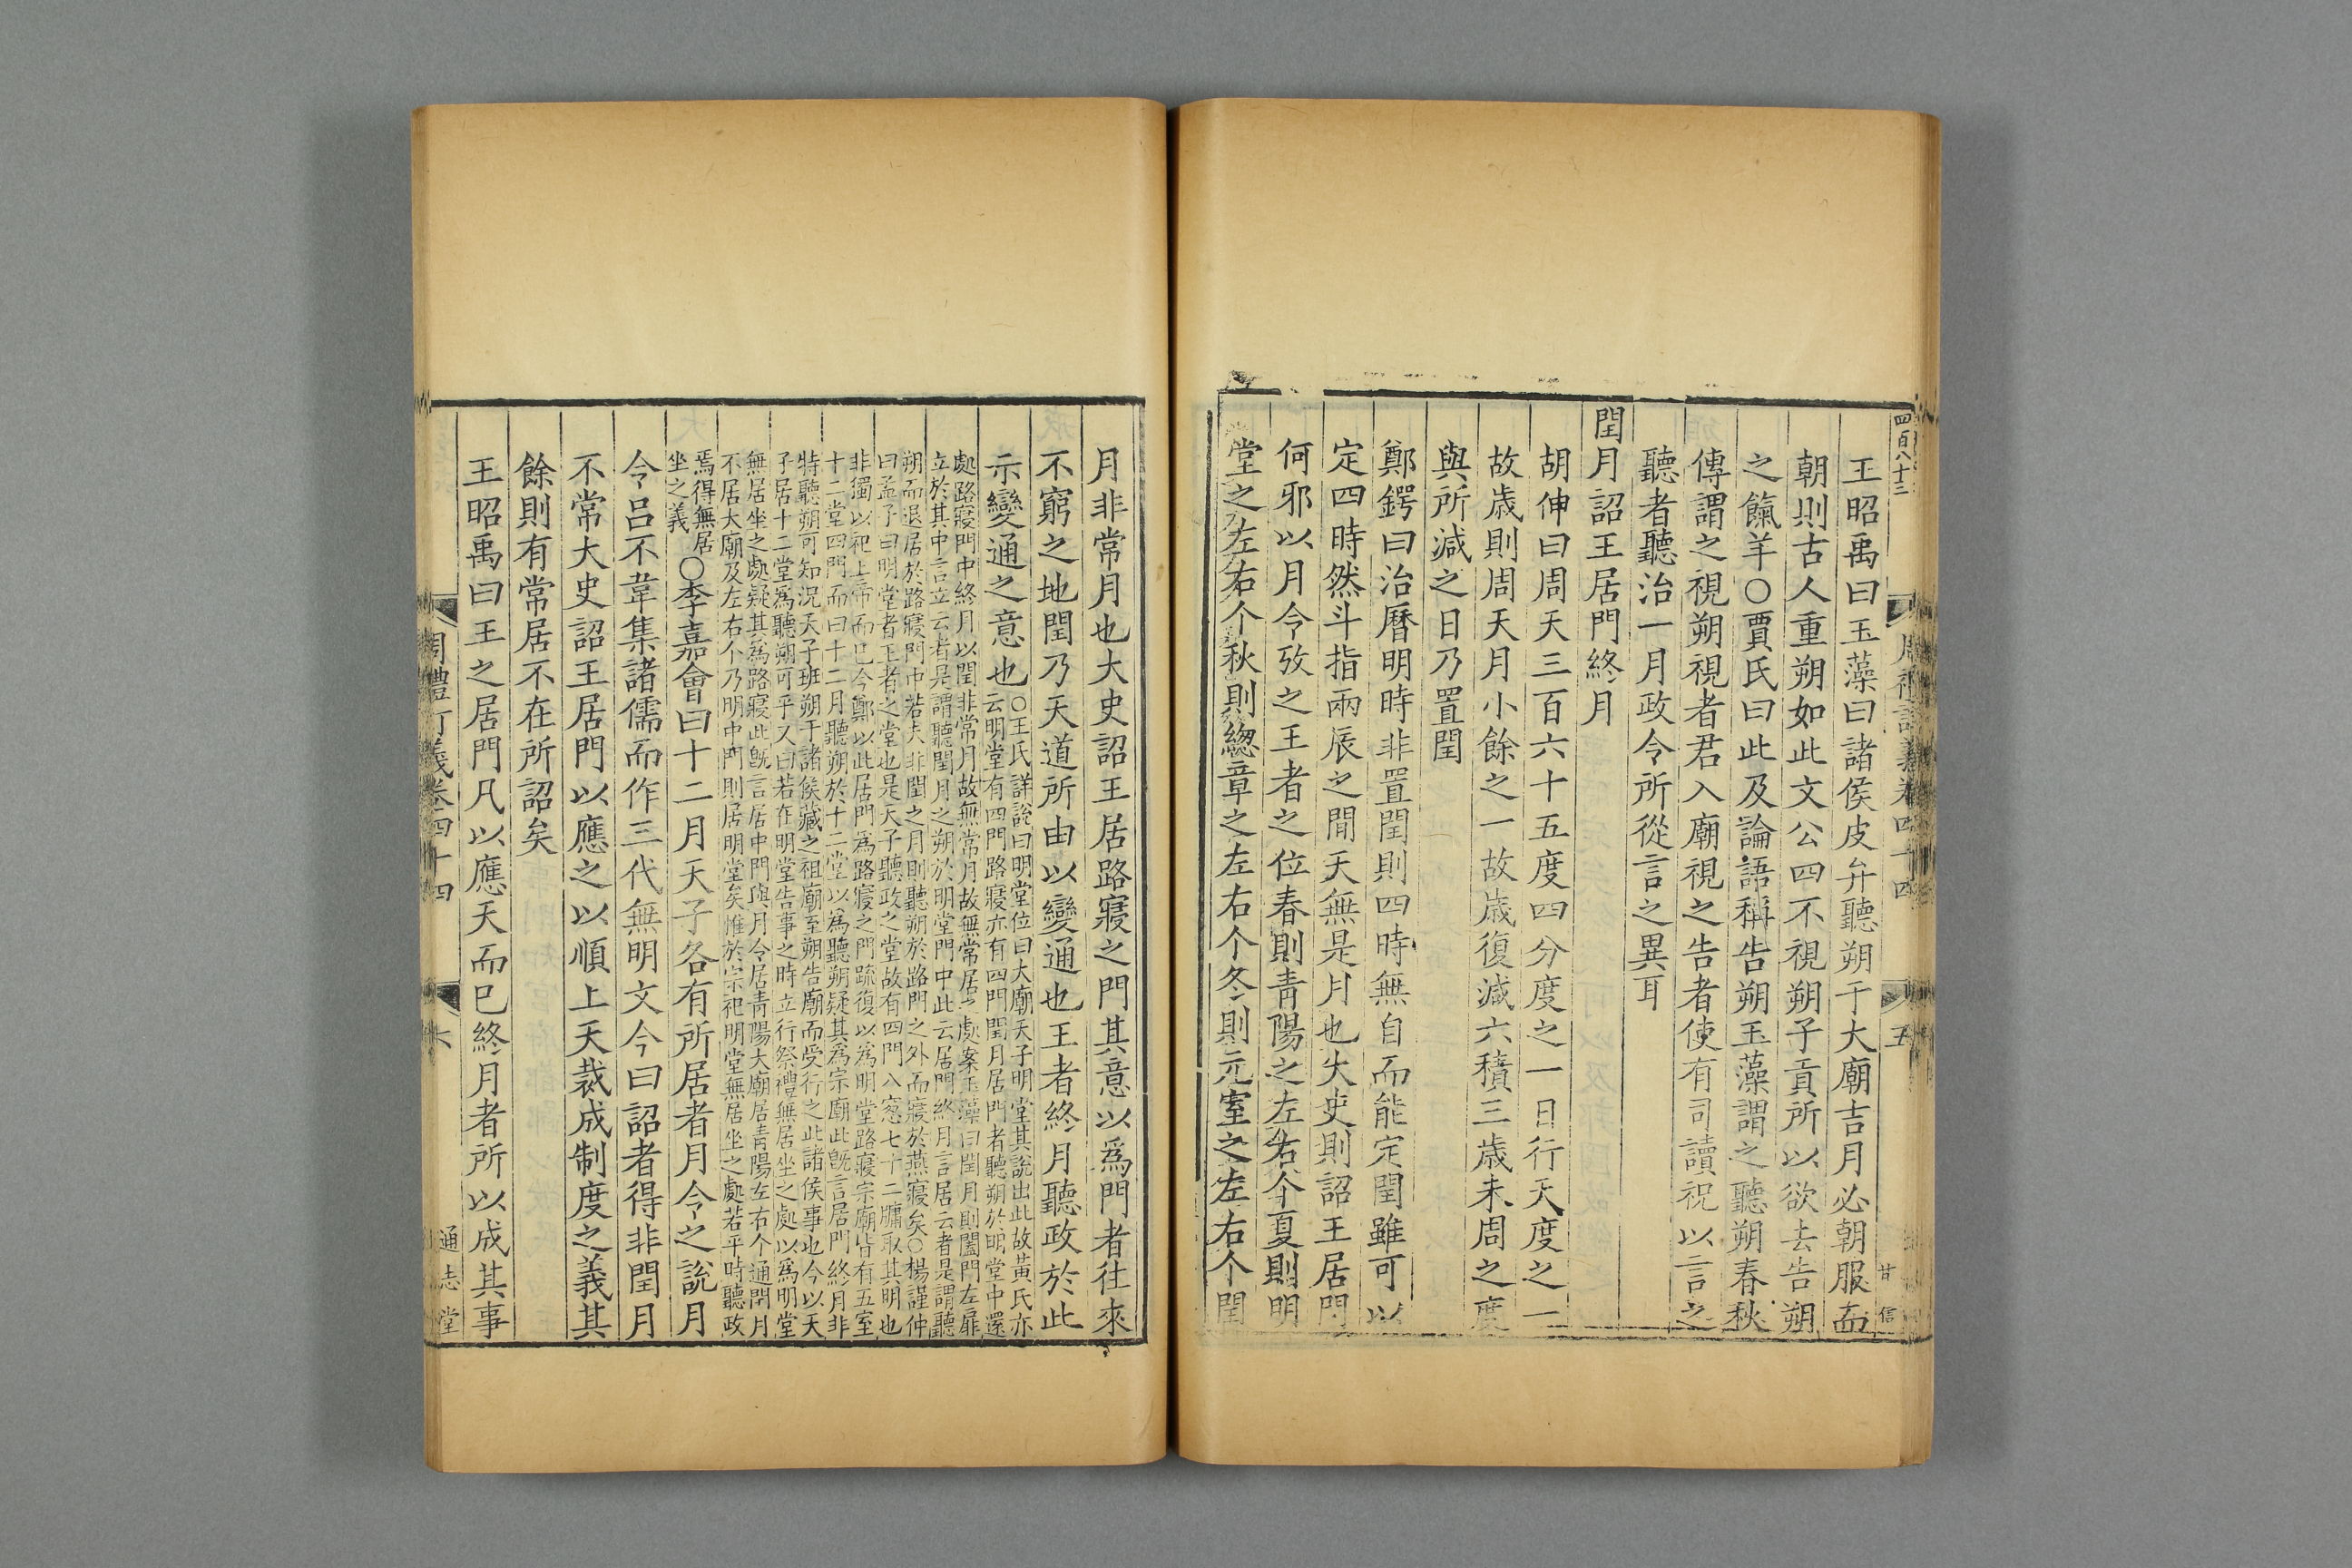 四百八十三
周禮訂義卷四十四
五
甘
信
王昭禹曰玉藻曰諸侯皮弁聽朔于大廟吉月必朝服而
朝則古人重朔如此文公四不視朔子貢所以欲去告朔
之餼羊○賈氏曰此及論語稱告朔玉藻謂之聽朔春秋
傳謂之視朔視者君入廟視之告者使有司讀祝以言之
聽者聽治一月政令所從言之異耳
閏月詔王居門終月
胡伸曰周天三百六十五度四分度之一日行天度之一
故歲則周天月小餘之一故歲復減六積三歲未周之度
與所減之日乃置閏
鄭鍔曰治曆明時非置閏則四時無自而能定閏雖可以
定四時然斗指兩辰之閒天無是月也大史則詔王居門
何邪以月令攷之王者之位春則青陽之左右个夏則明
堂之左右个秋則緫章之左右个冬則元室之左右个閏
月非常月也大史詔王居路寢之門其意以爲門者往來
不窮之地閏乃天道所由以變通也王者終月聽政於此
示變通之意也
○王氏詳說曰明堂位曰大廟天子明堂其說出此故黃氏亦
云明堂有四門路寢亦有四門閏月居門者聽朔於明堂中還
處路寢門中終月以閏非常月故無常月故無常居之處案玉藻曰閏月則闔門左扉
立於其中言立云者是謂聽閏月之朔於明堂門中此云居門終月言居云者是謂聽
朔而退居於路寢門中若夫非閏之月則聽朔於路門之外而寢於燕寢矣○楊謹仲
曰孟子曰明堂者王者之堂也是天子聽政之堂故有四門八窓七十二牖取其明也
非獨以祀上帝而已今鄭以此居門爲路寢之門疏復以爲明堂路寢宗廟皆有五室
十二堂四門而曰十二月聽朔於十二堂以爲聽朔疑其爲宗廟此旣言居門終月非
特聽朔可知況天子班朔于諸侯藏之祖廟至朔告廟而受行之此諸侯事也今以天
子居十二堂爲聽朔可乎又曰若在明堂告事之時立行祭禮無居坐之處以爲明堂
無居坐之處疑其爲路寢此旣言居中門與月令居青陽大廟居青陽左右个通閏月
不居大廟及左右个乃明中門則居明堂矣惟於宗祀明堂無居坐之處若平時聽政
焉得無居
坐之義
○李嘉會曰十二月天子各有所居者月令之說月
令呂不韋集諸儒而作三代無明文今曰詔者得非閏月
不常大史詔王居門以應之以順上天裁成制度之義其
餘則有常居不在所詔矣
王昭禹曰王之居門凡以應天而已終月者所以成其事
周禮訂義卷四十四
六
通志堂